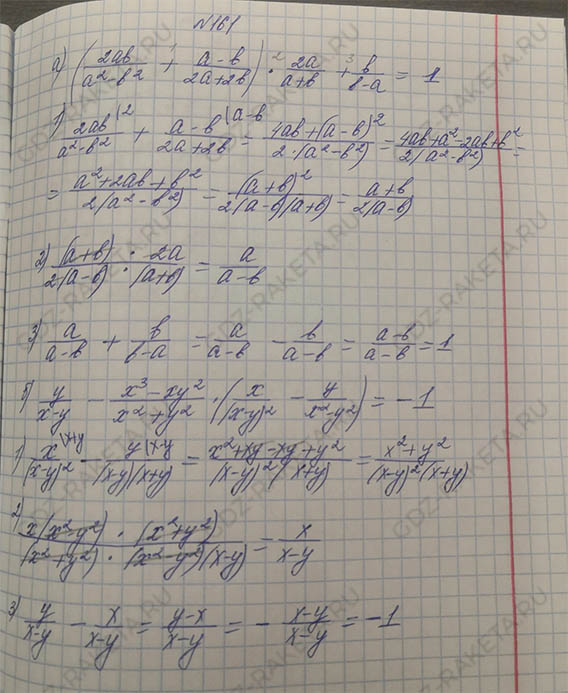 №161
а) (2ab/(a²-b²) + (a-b)/(2a+2b)) · 2a/(a+b) + b/(b-a) = 1
1) 2ab/(a²-b²) |2 + (a-b)/(2a+2b) |a-b = (4ab+(a-b)²)/(2·(a²-b²)) = (4ab+a²-2ab+b²)/(2(a²-b²)) =
= (a²+2ab+b²)/(2(a²-b²)) = (a+b)²/(2(a-b)(a+b)) = (a+b)/(2(a-b))
2) (a+b)/(2(a-b)) · 2a/(a+b) = a/(a-b)
3) a/(a-b) + b/(b-a) = a/(a-b) - b/(a-b) = (a-b)/(a-b) = 1
б) y/(x-y) - (x³-xy²)/(x²+y²) · (x/(x-y)² - y/(x²-y²)) = -1
1) x/(x-y)² |x+y - y/((x-y)(x+y)) |x-y = (x²+xy-xy+y²)/((x-y)²(x+y)) = (x²+y²)/((x-y)²(x+y))
2) (x(x²-y²)·(x²+y²))/((x²+y²)·(x²-y²)(x-y)) = x/(x-y)
3) y/(x-y) - x/(x-y) = (y-x)/(x-y) = -(x-y)/(x-y) = -1
GDZ-RAKETA.RU